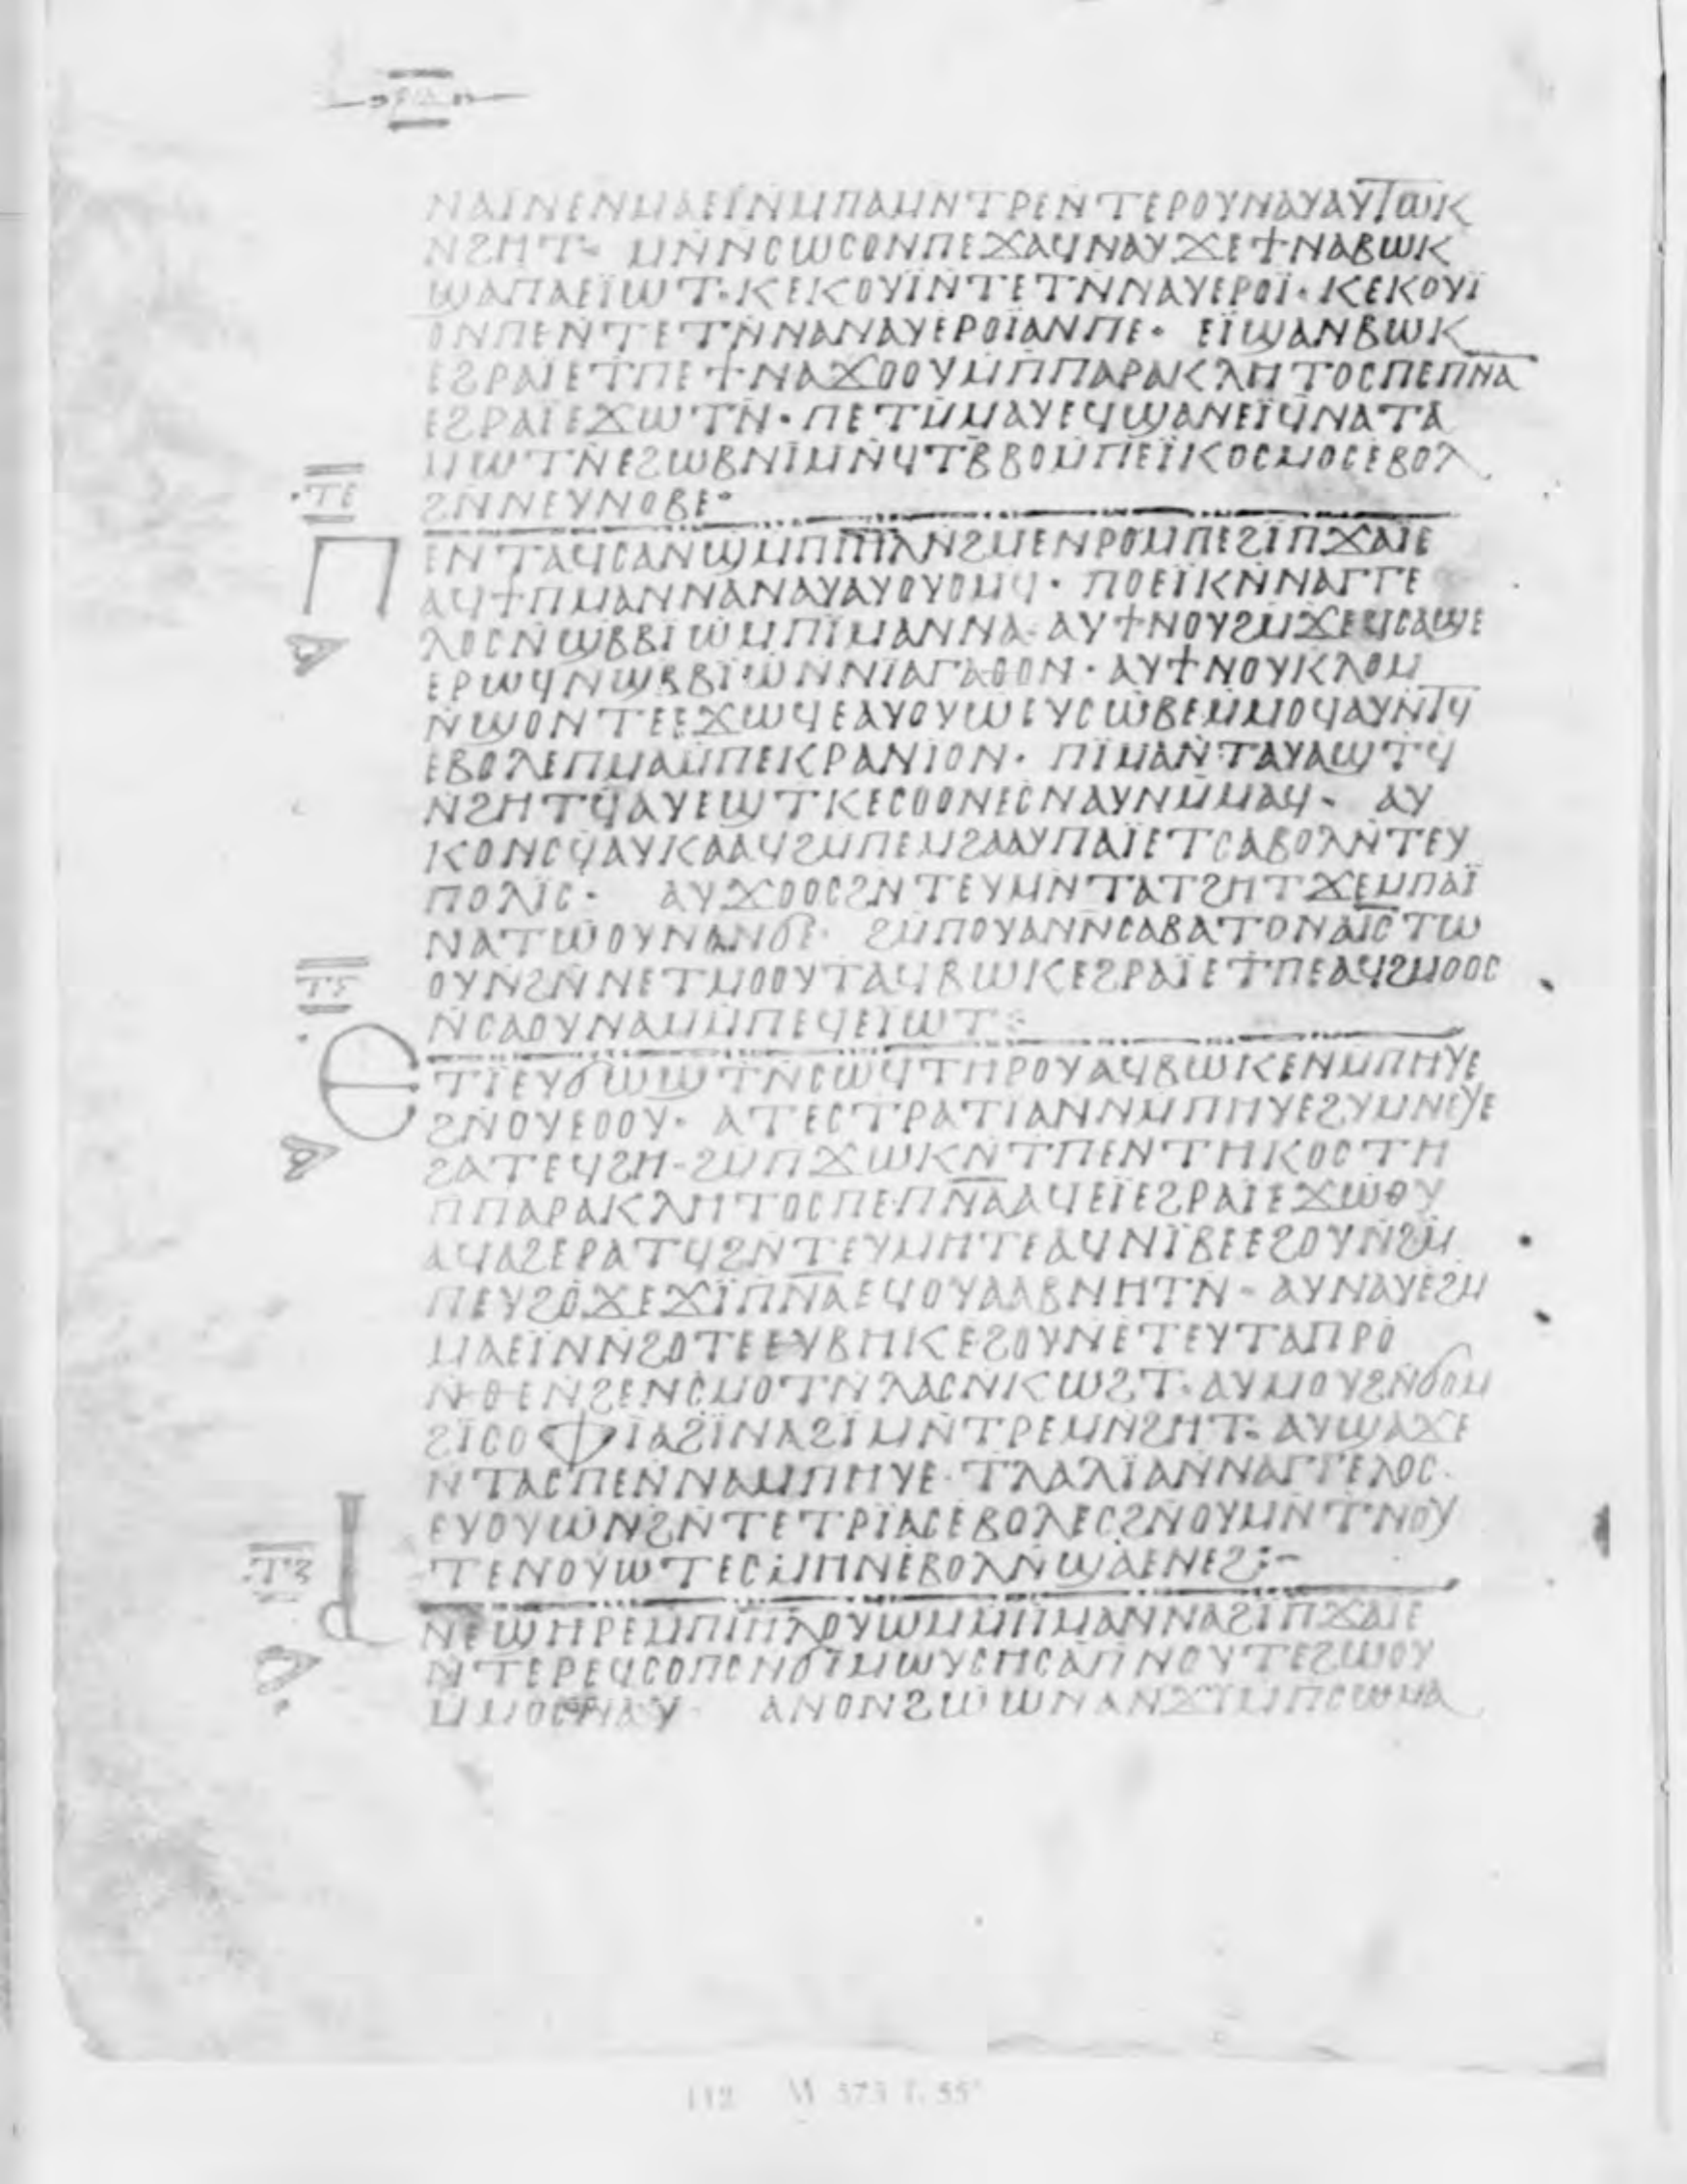 ⲣⲓⲇ
ⲛⲁⲓ̈ⲛⲉⲛⲙⲁⲉⲓ̈ⲛⲙⲡⲁⲙⲛⲧⲣⲉⲛⲧⲉⲣⲟⲩⲛⲁⲩⲁⲩⲧⲱⲕ
ⲛϩⲏⲧ· ⲙⲛ̄ⲛⲥⲱⲥⲟⲛⲡⲉϫⲁϥⲛⲁⲩϫⲉϯⲛⲁⲃⲱⲕ
ϣⲁⲡⲁⲉⲓ̈ⲱⲧ·ⲕⲉⲕⲟⲩⲓ̈ⲛⲧⲉⲧⲛ̄ⲛⲁⲩⲉⲣⲟⲓ̈·ⲕⲉⲕⲟⲩⲓ̈
ⲟⲛⲡⲉⲛⲧⲉⲧⲛ̄ⲛⲁⲛⲁⲩⲉⲣⲟⲓ̈ⲁⲛⲡⲉ· ⲉⲓ̈ϣⲁⲛⲃⲱⲕ
ⲉϩⲣⲁⲓⲉⲧⲡⲉϯⲛⲁϫⲟⲟⲩⲙⲡ̄ⲡⲁⲣⲁⲕⲗⲏⲧⲟⲥⲡⲉⲡⲛ̄ⲁ̄
ⲉϩⲣⲁⲓ̈ⲉϫⲱⲧⲛ̄·ⲡⲉⲧⲙ̄ⲙⲁⲩⲉϥϣⲁⲛⲉⲓ̈ϥⲛⲁⲧⲁ
ⲙⲱⲧⲛ̄ⲉϩⲱⲃⲛⲓ̈ⲙⲛ̄ϥⲧⲃ̄ⲃⲟⲙ̄ⲡⲉⲓ̈ⲕⲟⲥⲙⲟⲥⲉⲃⲟⲗ
ⲧⲉ
ϩⲛ̄ⲛⲉⲩⲛⲟⲃⲉ·
ⲡⲉⲛⲧⲁϥⲥⲁⲛϣⲙ̄ⲡⲓ̄ⲏ̄ⲗ̄ⲛ̄ϩⲙⲉⲛⲣⲟⲙⲡⲉϩⲓ̈ⲡϫⲁⲓⲉ
ⲁϥϯⲡⲙⲁⲛⲛⲁⲛⲁⲩⲁⲩⲟⲩⲟⲙϥ· ⲡⲟⲉⲓ̈ⲕⲛ̄ⲛⲁⲅⲅⲉ
ⲗⲟⲥⲛ̄ϣⲃ̄ⲃⲓ̈ⲱⲙⲡⲓ̈ⲙⲁⲛⲛⲁ·ⲁⲩϯⲛⲟⲩϩⲙ̄ϫⲉϥⲥⲁϣⲉ
ⲉⲣⲱϥⲛϣⲃ̄ⲃⲓ̈ⲱⲛ̄ⲛⲓ̈ⲁⲅⲁⲑⲟⲛ·ⲁⲩϯⲛⲟⲩⲕⲗⲟⲙ
ⲛ̄ϣⲟⲛⲧⲉⲉϫⲱϥⲉⲁⲩⲟⲩⲱⲉⲩⲥⲱⲃⲉⲙ̄ⲙⲟϥⲁⲩⲛ̄ⲧϥ̄
ⲉⲃⲟⲗⲉⲡⲙⲁⲙ̄ⲡⲉⲕⲣⲁⲛⲓⲟⲛ· ⲡⲓ̈ⲙⲁⲛ̄ⲧⲁⲩⲁϣⲧϥ̄
ⲛ̄ϩⲏⲧϥ̄ⲁⲩⲉϣⲧⲕⲉⲥⲟⲟⲛⲉⲥⲛⲁⲩⲛⲙ̄ⲙⲁϥ· ⲁⲩ
ⲕⲟⲛⲥϥ̄ⲁⲩⲕⲁⲁϥϩⲙ̄ⲡⲉⲙϩⲁⲁⲩⲡⲁⲓ̈ⲉⲧⲥⲁⲃⲟⲗⲛ̄ⲧⲉⲩ
ⲡⲟⲗⲓ̈ⲥ· ⲁⲩϫⲟⲟⲥϩⲛⲧⲉⲩⲙⲛ̄ⲧⲁⲧϩⲏⲧϫⲉⲙⲡⲁⲓ̈
ⲛⲁⲧⲱⲟⲩⲛⲁⲛϭⲉ· ϩⲙ̄ⲡⲟⲩⲁⲛⲛ̄ⲥⲁⲃⲁⲧⲟⲛⲁⲓ̄ⲥ̄ⲧⲱ
ⲧⲋ
ⲟⲩⲛϩⲛ̄ⲛⲉⲧⲙⲟⲟⲩⲧⲁϥⲃⲱⲕⲉϩⲣⲁⲓ̈ⲉⲧⲡⲉⲁϥϩⲙⲟⲟⲥ
ⲛ̄ⲥⲁⲟⲩⲛⲁⲙⲙ̄ⲡⲉϥⲉⲓ̈ⲱⲧ·
ⲉⲧⲓ̈ⲉⲩϭⲱϣⲧⲛ̄ⲥⲱϥⲧⲏⲣⲟⲩⲁϥⲃⲱⲕⲉⲛⲙⲡⲏⲩⲉ
ϩⲛ̄ⲟⲩⲉⲟⲟⲩ· ⲁⲧⲉⲥⲧⲣⲁⲧⲓⲁⲛⲛⲙⲡⲏⲩⲉϩⲩⲙⲛⲉⲩⲉ
ϩⲁⲧⲉϥϩⲏ·ϩⲙ̄ⲡϫⲱⲕⲛ̄ⲧⲡⲉⲛⲧⲏⲕⲟⲥⲧⲏ
ⲡⲡⲁⲣⲁⲕⲗⲏⲧⲟⲥⲡⲉⲡⲛ̄ⲁ̄ⲁϥⲉⲓ̈ⲉϩⲣⲁⲓ̈ⲉϫⲱⲟⲩ
ⲁϥⲁϩⲉⲣⲁⲧϥϩⲛⲧⲉⲩⲙⲏⲧⲉⲁϥⲛⲓ̈ⲃⲉⲉϩⲟⲩⲛϩⲙ̄
ⲡⲉⲩϩⲟ̇ϫⲉϫⲓ̈ⲡⲛ̄ⲁ̄ⲉϥⲟⲩⲁⲁⲃⲛⲏⲧⲛ̄·ⲁⲩⲛⲁⲩⲉϩⲙ
ⲙⲁⲉⲓ̈ⲛⲛ̄ϩⲟⲧⲉⲉⲩⲃⲏⲕⲉϩⲟⲩⲛⲉⲧⲉⲩⲧⲁⲡⲣⲟ
ⲛⲑⲉⲛ̄ϩⲉⲛⲥⲙⲟⲧⲛ̄ⲗⲁⲥⲛⲕⲱϩⲧ·ⲁⲩⲙⲟⲩϩⲛ̄ϭⲟⲙ
ϩⲓ̈ⲥⲟⲫⲓⲁϩⲓ̈ⲛⲁϩⲓ̈ⲙⲛ̄ⲧⲣⲉⲙⲛϩⲏⲧ·ⲁⲩϣⲁϫⲉ
ⲛⲧⲁⲥⲡⲉⲛ̄ⲛⲁⲙⲡⲏⲩⲉ·ⲧⲗⲁⲗⲓ̈ⲁⲛ̄ⲛⲁⲅⲅⲉⲗⲟⲥ·
ⲉⲩⲟⲩⲱⲛϩⲛ̄ⲧⲉⲧⲣⲓ̈ⲁⲥⲉⲃⲟⲗⲉⲥϩⲛ̄ⲟⲩⲙⲛ̄ⲧⲛⲟⲩ
ⲧⲍ
ⲧⲉⲛⲟⲩⲱⲧⲉⲥⲙⲏⲛⲉⲃⲟⲗⲛ̄ϣⲁⲉⲛⲉϩ:–
ⲁⲛⲉϣⲏⲣⲉⲙ̄ⲡⲓ̄ⲏ̄ⲗ̄ⲟⲩⲱⲙⲙ̄ⲡⲙⲁⲛⲛⲁϩⲓⲡϫⲁⲓⲉ
ⲛⲧⲉⲣⲉϥⲥⲟⲡⲥⲛϭⲓⲙⲱⲩⲥⲏⲥⲁⲡⲛⲟⲩⲧⲉϩⲱⲟⲩ
ⲁⲛⲟⲛϩⲱⲱⲛⲁⲛϫⲓⲙ̄ⲡⲥⲱⲙⲁ
112 M 573 f. 55ᵛ